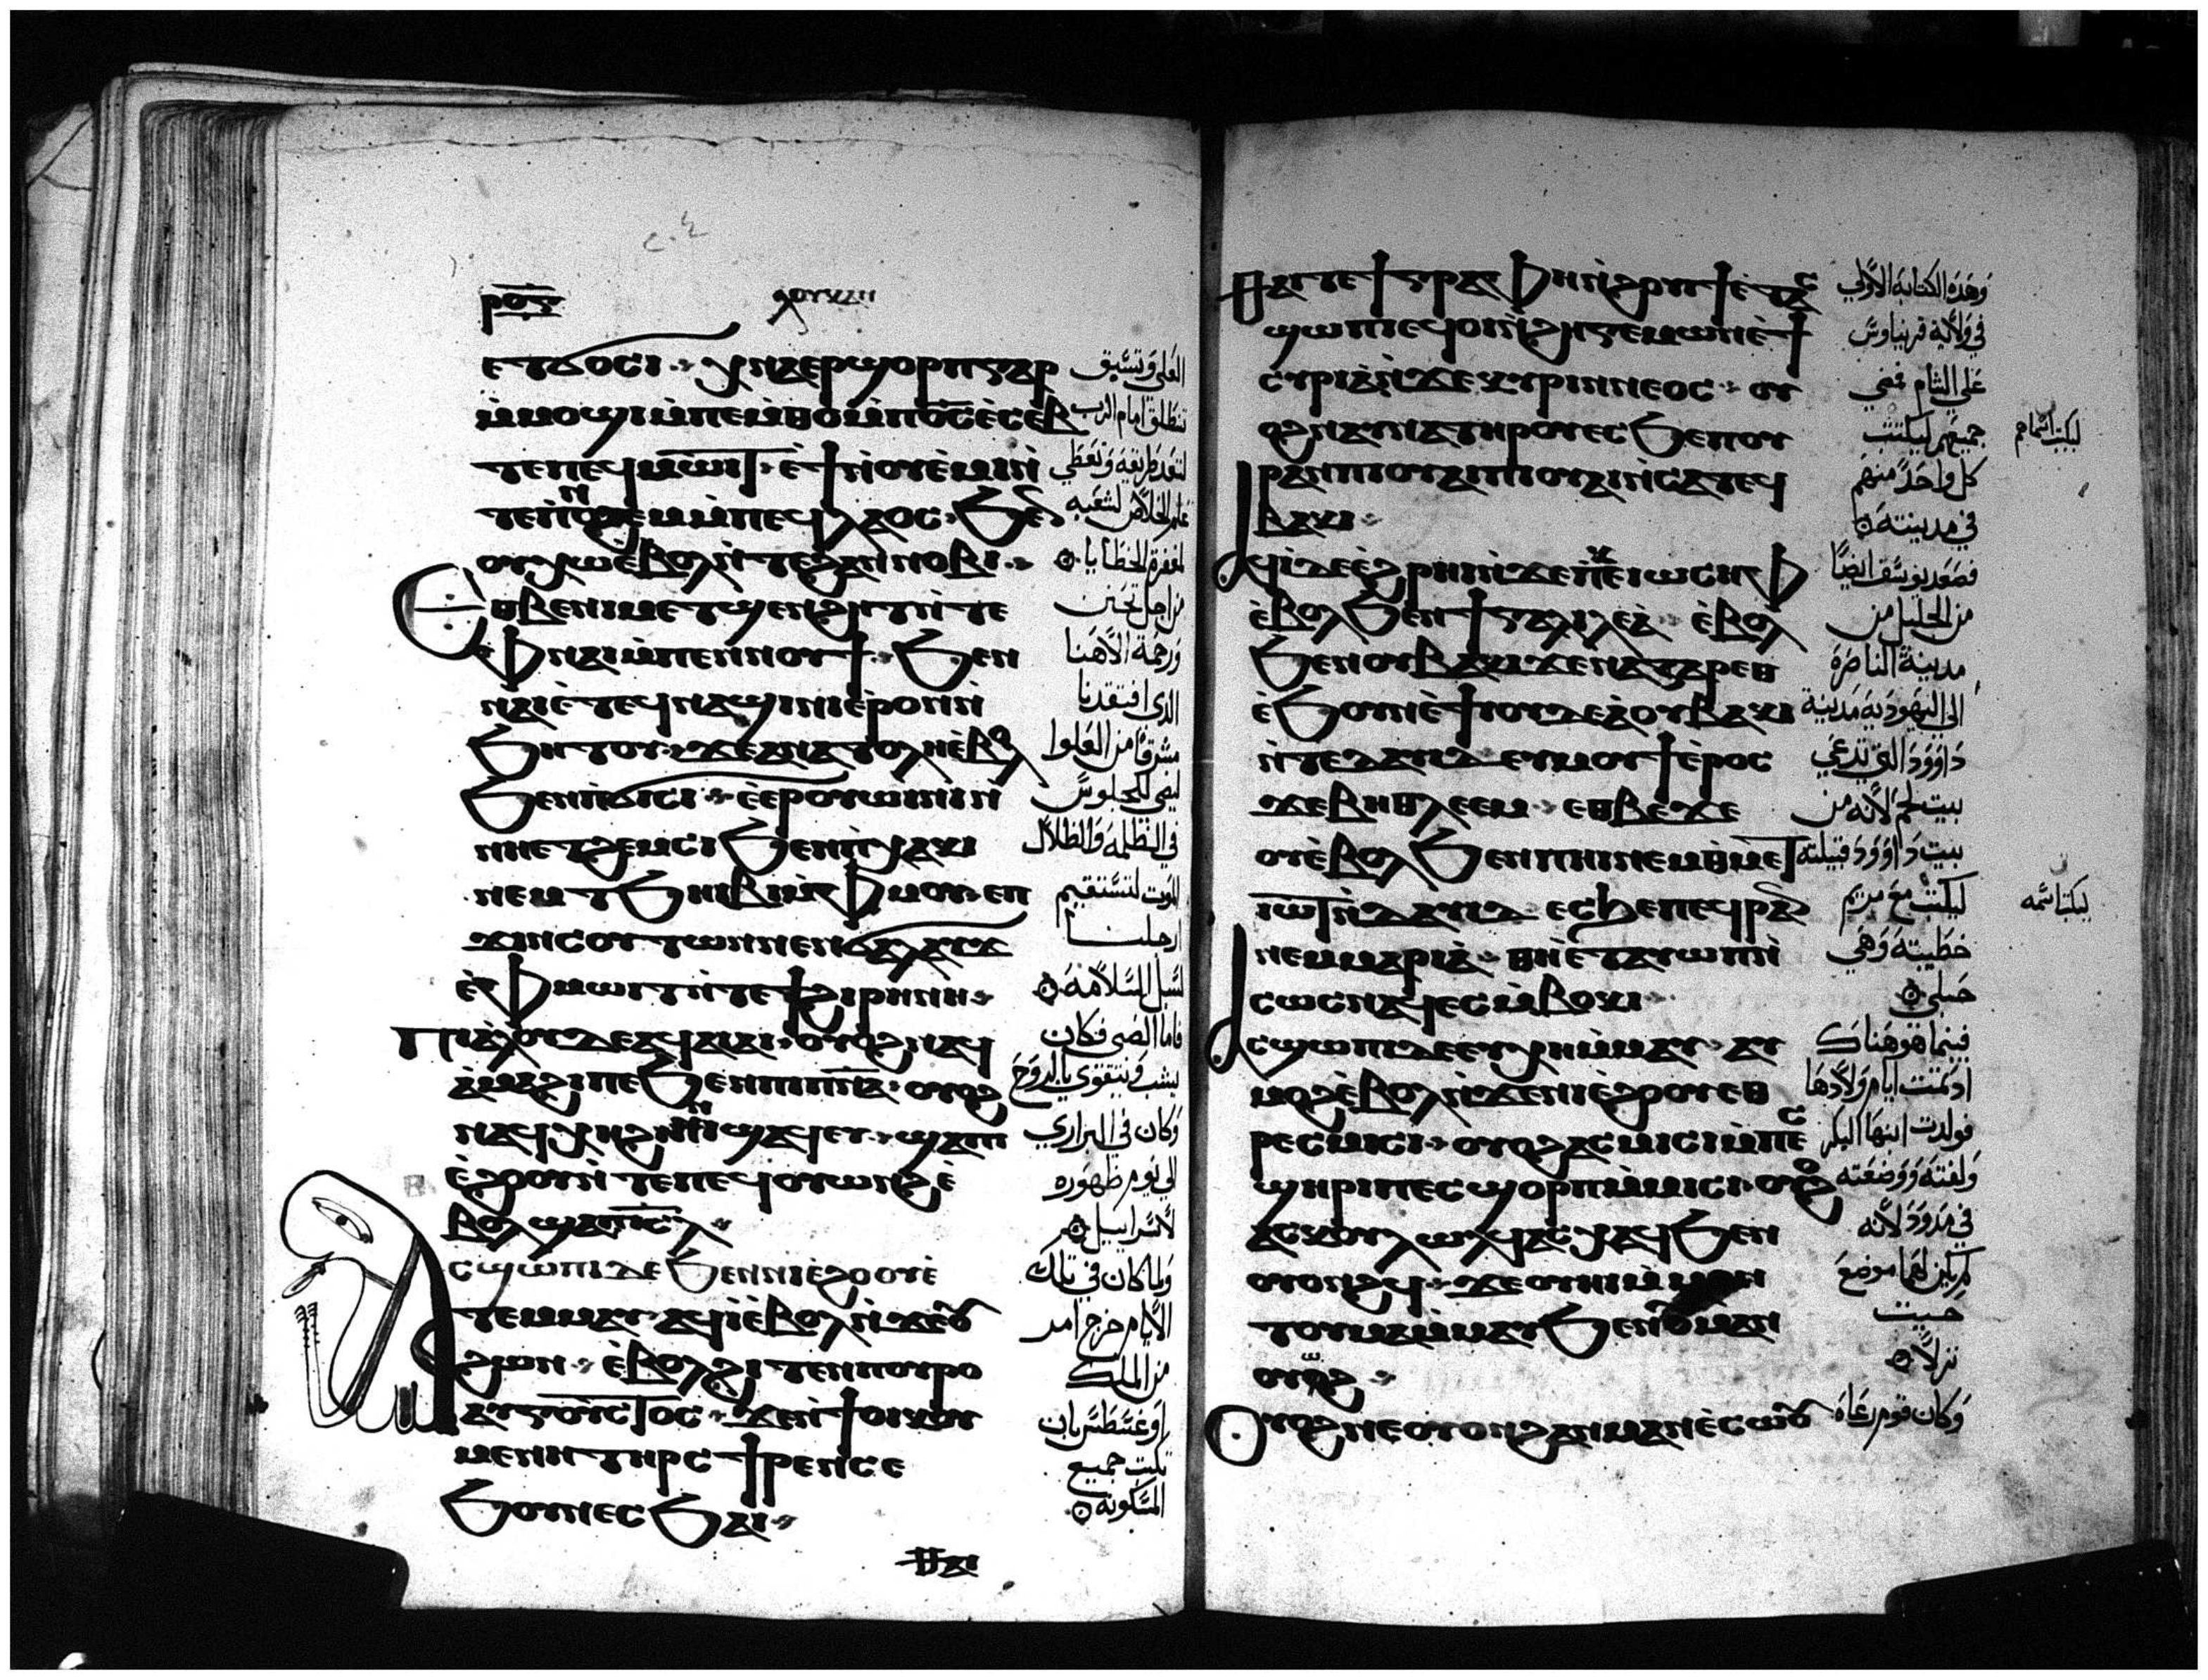 ⲣⲟⲋ ⲗⲟⲩⲕⲁⲛ
ⲉⲧϭⲟⲥⲓ ⲭⲛⲁⲉⲣϣⲟⲣⲡ ⲅⲁⲣ
ⲙ̀ⲙⲟϣⲓ ⲙ̀ⲡⲉⲙ̀ⲑⲟ ⲙ̀ⲡⲟ̅ⲥ̅ ⲉ̀ⲥⲉⲃ
ⲧⲉ ⲡⲉϥⲙⲱⲓⲧ ⲉ̀ϯ ⲛ̀ⲟⲩⲉ̀ⲙⲓ ⲛ̀
ⲧⲉ ⲡ̀ⲛⲟϩⲉⲙ ⲙ̀ⲡⲉϥⲗⲁⲟⲥ ϧⲉⲛ
ⲟⲩⲭⲱ ⲉⲃⲟⲗ ⲛ̀ⲧⲉ ϩⲁⲛⲛⲟⲃⲓ
ⲉⲑⲃⲉ ⲛⲓⲙⲉⲧϣⲉⲛϩⲏⲧ ⲛ̀ⲧⲉ
ⲫⲛⲁⲓ ⲙ̀ⲡⲉⲛⲛⲟⲩϯ ϧⲉⲛ
ⲛⲁⲓ ⲉ̀ⲧⲉϥⲛⲁϣⲓⲛⲓ ⲉ̀ⲣⲟⲛ ⲛ̀
ϧⲏⲧⲟⲩ ϫⲉ ⲁⲛⲁⲧⲟⲗⲏ ⲉ̀ⲃⲟⲗ
ϧⲉⲛ ⲡ̀ϭⲓⲥⲓ ⲉ̀ⲉⲣⲟⲩⲱⲓⲛⲓ ⲛ̀
ⲛⲏⲉⲧϩⲉⲙⲥⲓ ϧⲉⲛ ⲡ̀ⲭⲁⲕⲓ
ⲛⲉⲙ ⲧϧⲏⲓⲃⲓ ⲙ̀ⲫⲙⲟⲩ ⲉⲡ
ϫⲓⲛⲥⲟⲩⲧⲱⲛ ⲛⲉⲛϭⲁⲗⲁⲩϫ
ⲉ̀ⲫⲙⲱⲓⲧ ⲛ̀ⲧⲉ ϯϩⲓⲣⲏⲛⲏ
ⲡⲓⲁ̀ⲗⲟⲩ ⲇⲉ ⲁϥⲁⲓⲁⲓ ⲟⲩⲟϩ ⲛⲁϥ
ⲁ̀ⲙⲁϩⲓ ⲡⲉ ϧⲉⲛ ⲡⲓⲡ̅ⲛ̅ⲁ̅ ⲟⲩⲟϩ
ⲛⲁϥⲭⲏ ϩⲛⲓϣⲁϥⲉⲩ ϣⲁ ⲡⲓ
ⲉ̀ϩⲟⲟⲩ ⲛ̀ⲧⲉ ⲡⲉϥⲟⲩⲱⲛϩ ⲉ̀
ⲃⲟⲗ ϣⲁ ⲡⲓⲥ̅ⲗ̅
ⲁⲥϣⲱⲡⲓ ⲇⲉ ϧⲉⲛ ⲛⲓⲉ̀ϩⲟⲟⲩ ⲉ̀
ⲧⲉⲙⲙⲁⲩ ⲁϥⲓ̀ ⲉ̀ⲃⲟⲗ ⲛ̀ϫⲉ ⲟⲩ
ϩⲱⲛ ⲉ̀ⲃⲟⲗ ϩⲓⲧⲉⲛ ⲡⲟⲩⲣⲟ
ⲁⲩⲅⲟⲩⲥⲧⲟⲥ ϫⲉ ⲛ̀ϯⲟⲓⲕⲟⲩ
ⲙⲉⲛⲏ ⲧⲏⲣⲥ ⲛ̀ⲧⲟⲩ ⲥ
ϧⲟⲩⲛⲉⲥ ϧⲁⲓ
ⲑⲁⲓ
العلي وتسبق
تنطلق امام الرب
لتعد طريقه وتعطي
علم الخلاص لشعبه
لمغفرة الخطايا
من اجل تحنن
ورحمة الاهنا
الذي افتقدنا
مشرقا من العلوا
ليضي للجلوس
في الظلمه والظلال
الموت لتستقيم
ارجلنا
لسبل السلامه
فاما الصبى فكان
يشب ويتقوي بالروح
وكان في البراري
الي يوم ظهوره
لاسراييل
ولما كان في تلك
الايام خرج امر
من الملك
اوغسطس بان
تكتب جميع
المسكونه
ⲑⲁⲓ ⲧⲉ ϯⲅⲣⲁⲫⲏ ⲛ̀ϩⲟⲩⲓϯ ⲉ̀ⲧⲁⲥ
ϣⲱⲡⲓ ⲉϥⲟⲓ ⲛ̀ϩⲏⲅⲉⲙⲱⲛ ⲉ̀ϯ
ⲥⲩⲣⲓⲁ ⲛ̀ϫⲉ ⲕⲩⲣⲓⲛⲛⲉⲟⲥ ⲟⲩ
ⲟϩ ⲛⲁⲩⲛⲁ ⲧⲏⲣⲟⲩ ⲉⲥϧⲉ ⲡⲟⲩ
ⲣⲁⲛ ⲡⲓⲟⲩⲁⲓ ⲡⲓⲟⲩⲁⲓ ⲛ̀ⲥⲁ ⲧⲉϥ
ⲃⲁⲕⲓ
ⲁϥⲓ̀ ⲇⲉ ⲉ̀ϩⲣⲏⲓ ⲛ̀ϫⲉ ⲡ̀ⲕⲉⲓⲱⲥⲏⲫ
ⲉ̀ⲃⲟⲗ ϧⲉⲛ ϯⲅⲁⲗⲓⲗⲉⲁ̀ ⲉ̀ⲃⲟⲗ
ϧⲉⲛ ⲟⲩⲃⲁⲕⲓ ϫⲉ ⲛⲁⲍⲁⲣⲉⲑ
ⲉ̀ϧⲟⲩⲛ ⲉ̀ϯⲓⲟⲩⲇⲉⲁ̀ ⲟⲩⲃⲁⲕⲓ
ⲛ̀ⲧⲉ ⲇⲁⲩⲓⲇ ⲉⲩⲙⲟⲩϯ ⲉ̀ⲣⲟⲥ
ϫⲉ ⲃⲏⲑⲗⲉⲉⲙ ⲉⲑⲃⲉ ϫⲉ
ⲟⲩⲉ̀ⲃⲟⲗ ϧⲉⲛ ⲡⲏⲓ ⲛⲉⲙ ⲑⲙⲉⲧ
ⲓⲱⲧ ⲛ̀ⲇⲁⲩⲓⲇ ⲉⲥϧⲉ ⲡⲉϥⲣⲁⲛ
ⲛⲉⲙ ⲙⲁⲣⲓⲁ̀ ⲑⲏ ⲉ̀ⲧⲁⲩⲱⲡ ⲛ̀
ⲥⲱⲥ ⲛⲁϥ ⲉⲥⲙ̀ⲃⲟⲕⲓ
ⲁⲥϣⲱⲡⲓ ⲇⲉ ⲉⲩⲭⲏ ⲙ̀ⲙⲁⲩ ⲁⲩ
ⲙⲟϩ ⲉ̀ⲃⲟⲗ ⲛ̀ϫⲉ ⲛⲓⲉ̀ϩⲟⲟⲩ ⲉⲑ
ⲣⲉⲥⲙⲓⲥⲓ ⲟⲩⲟϩ ⲁⲥⲙⲓⲥⲓ ⲙ̀ⲡⲉⲥ
ϣⲏⲣⲓ ⲡⲉⲥϣⲟⲣⲡ ⲙ̀ⲙⲓⲥⲓ ⲟⲩⲟϩ
ⲁⲥⲕⲟⲩⲗⲱⲗϥ ⲁⲥⲭⲁϥ ϧⲉⲛ
ⲟⲩⲟⲛϩϥ ϫⲉ ⲟⲩⲏⲓ ⲙ̀ⲙⲟⲛ
ⲧⲟⲩ ⲙⲁ ⲙ̀ⲙⲁⲩ ϧⲉⲛ ⲟⲩⲙⲁⲛ
ⲟⲩⲱϩ
ⲟⲩⲟϩ ⲛⲉ ⲟⲩⲟⲛ ϩⲁⲛⲙⲁⲛⲉ̀ⲥⲱⲟⲩ
وهذه الكتابة الاولي
في ولاية قرينياوس
علي الشام فمضي
جميعهم ليكتتب
ليكتب اسماهم
كل واحد منهم
في مدينته
فصعد يوسف ايضًا
من الجليل من
مدينة الناصرة
الي اليهودية مدينة
داوود التي تدعي
بيت لحم لانه من
بيت داوود قبيلته
ليكتتب مع مريم
ليكتب اسمه
خطيبته وهي
حبلي
فبينما هو هناك
اذ تمت ايام ولادها
فولدت ابنها البكر
ولفته ووضعته
في مدود لانه
لم يكن لهما موضع
حيث
نزلا
وكان قوم رعاة